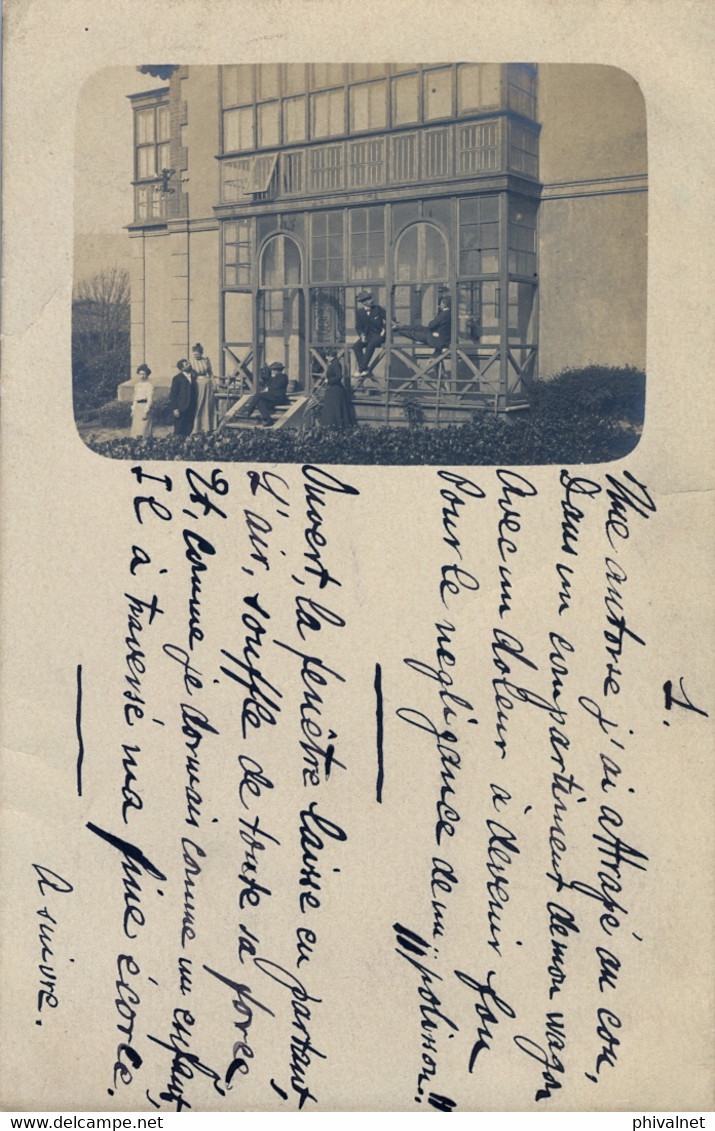 1.
Une entorse j'ai attrapé au cou,
Dans un compartiment de mon wagon
Avec un doleur à devenir fou
Pour le negligance de un "polisson"
Ouvert, la fenêtre laisse en partant,
L'air, souffle de toute sa force
Et, comme je dormais comme un enfant,
Il a traversé ma fine écorce.
A suivre.
delcampe.net
phivalnet